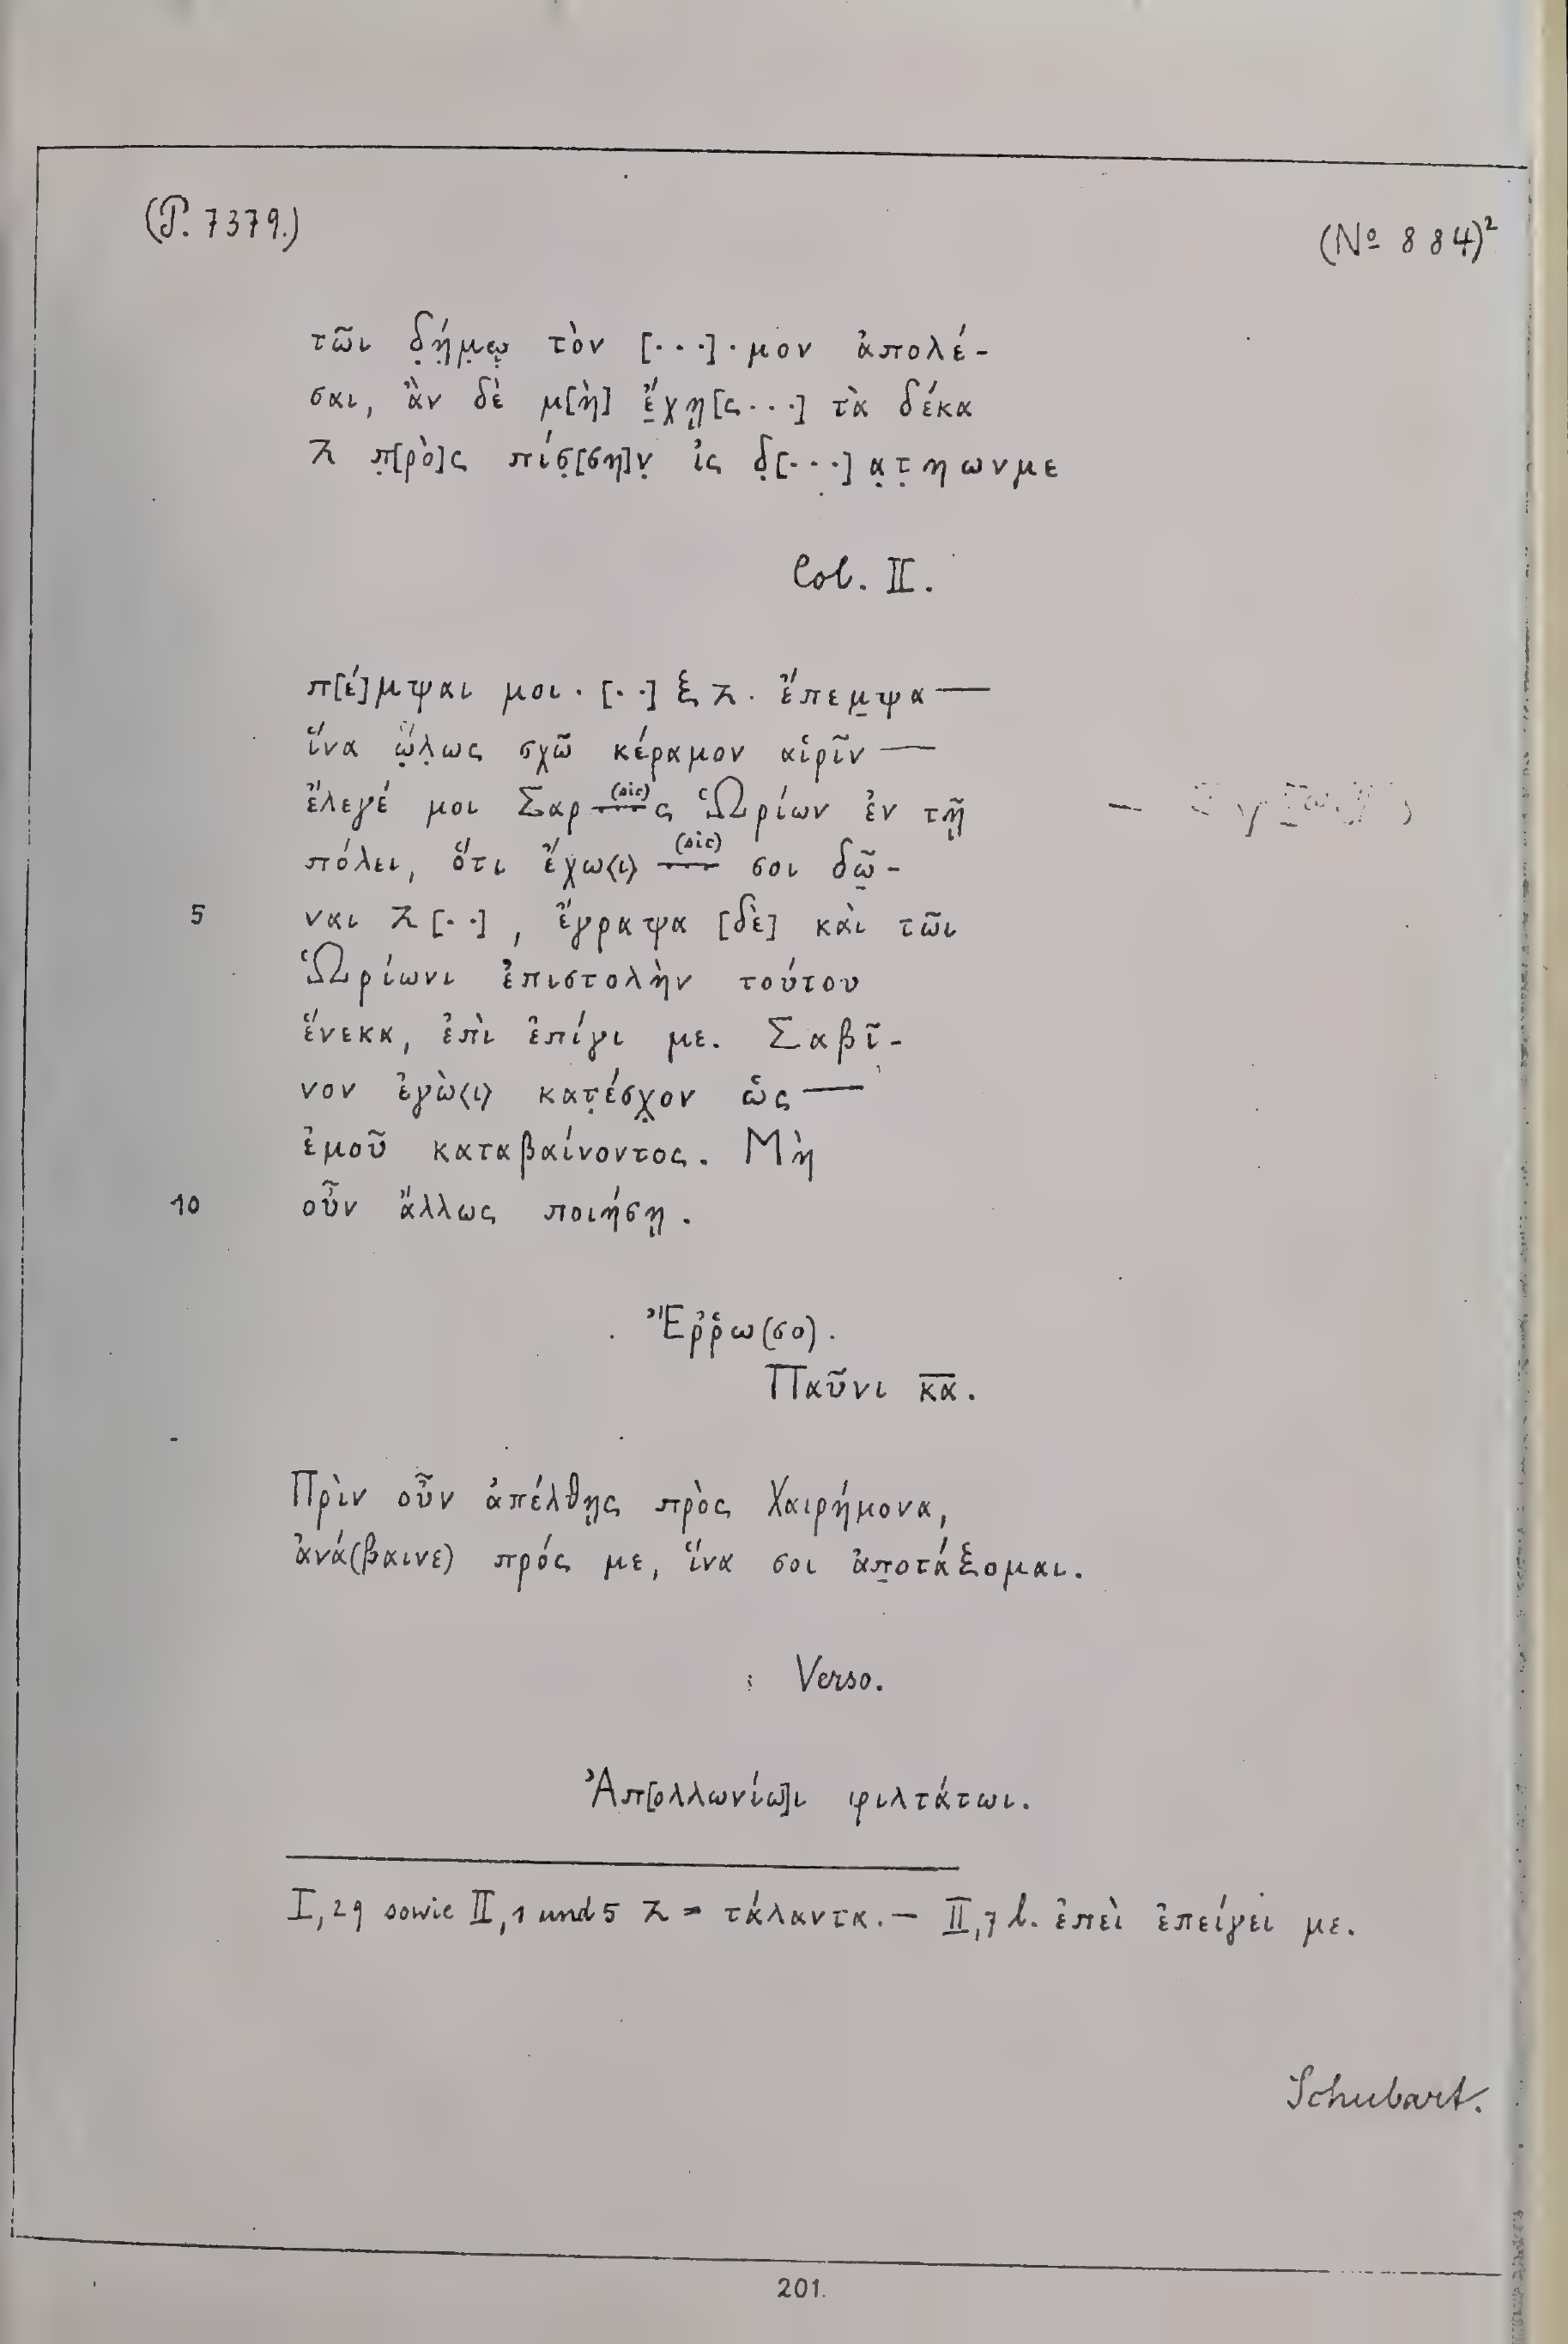 (P. 7379.)
(No 884)²
τῶι δ̣ή̣μ̣ῳ̣ τὸν [· · ·] · μον ἀπολέ-
σαι, ἂν δὲ μ[ὴ] ἔ̣χῃ[ς · · ·] τὰ δέκα
⊼ π̣[ρὸ]ς πίσ̣[ση]ν̣ ἰς δ̣[· · ·] α̣τ̣ηωνμε
Col. II.
π[έ]μψαι μοι · [· ·] ξ ⊼ · ἔπεμ̣ψα —
ἵνα ὥ̣λ̣ως σχῶ κέραμον αἱρῖν —
ἔλεγέ μοι Σαρ (sic) ς Ὡρίων ἐν τῇ
πόλει, ὅτι ἔχω⟨ι⟩ (sic) σοι δῶ̣-
5 ναι ⊼ [· ·], ἔγραψα [δὲ] καὶ τῶι
Ὡρίωνι ἐπιστολὴν τούτου
ἕνεκα, ἐπὶ ἐπίγι με. Σαβῖ-
νον ἐγὼ⟨ι⟩ κατ̣έσχ̣ον ὡς —
ἐμοῦ καταβαίνοντος. Μὴ
10 οὖν ἄλλως ποιήσῃ.
Ἔῤῥω(σο).
Παῦνι κ̅α̅.
Πρὶν οὖν ἀπέλθῃς πρὸς Χαιρήμονα,
ἀνά(βαινε) πρός με, ἵνα σοι ἀπ̣οτάξομαι.
Verso.
Ἀπ[ολλωνίω]ι φιλτάτωι.
I, 29 sowie II, 1 und 5 ⊼ = τάλαντα. — II, 7 l. ἐπεὶ ἐπείγει με.
Schubart.
201.